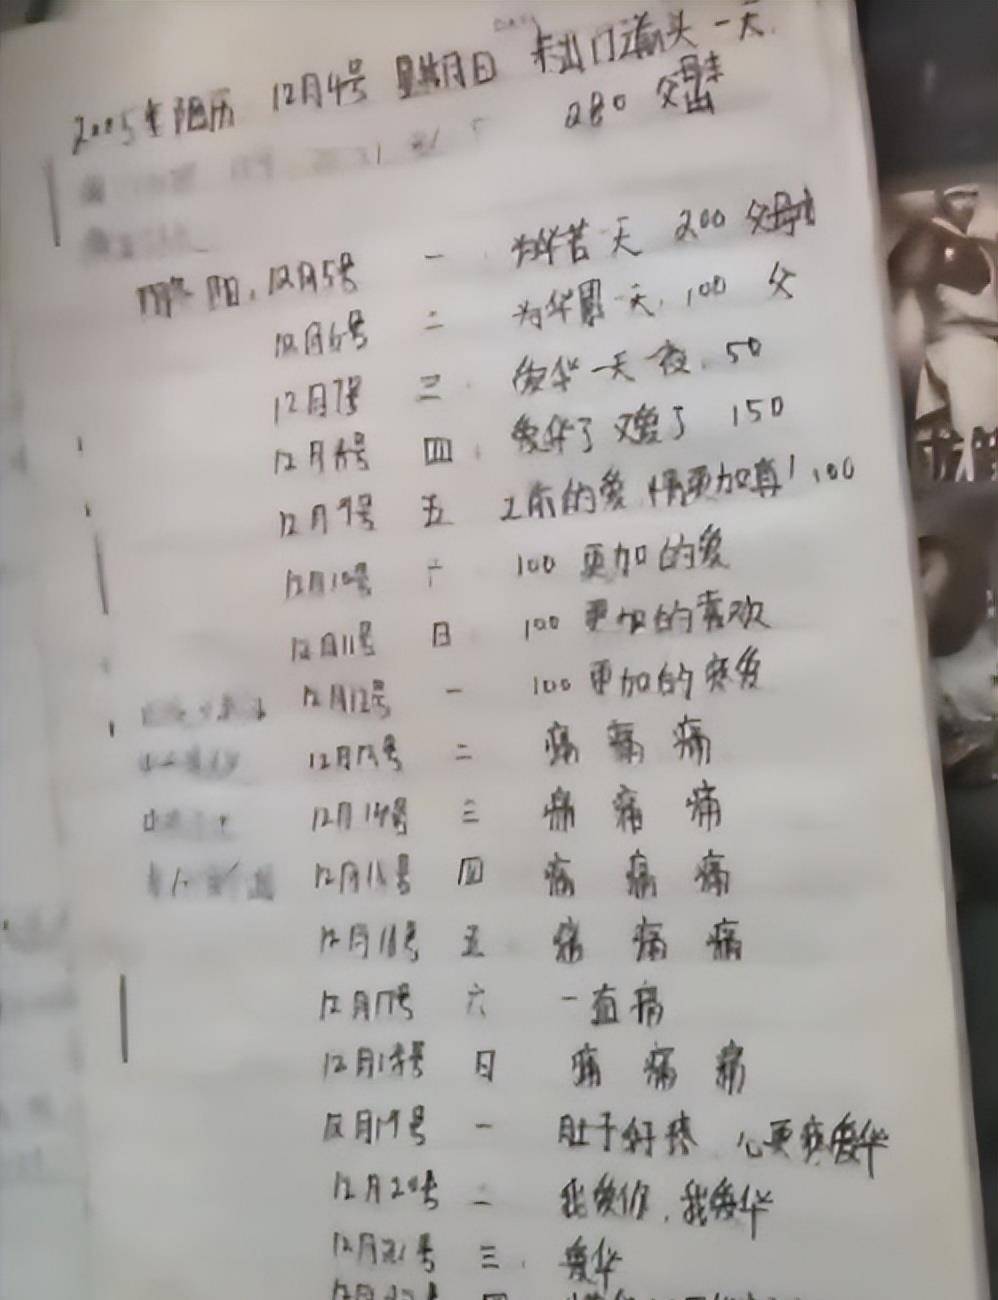 2005年阳历 12月4号 星期日 未出门 头一天
280 父母未出
阳,12月5号 一 为华苦一天 200 父母
12月6号 二 为华累一天,100 父
12月7号 三 爱华一天夜,50
12月8号 四 爱华了又爱了 150
12月9号 五 的爱 情更加真!100
12月10号 六 100 更加的爱
12月11号 日 100 更加的喜欢
12月12号 一 100 更加的疼爱
12月13号 二 痛 痛 痛
12月14号 三 痛 痛 痛
12月15号 四 痛 痛 痛
12月16号 五 痛 痛 痛
12月17号 六 一直痛
12月18号 日 痛 痛 痛
12月19号 一 肚子好疼,心更疼爱华
12月20号 二 我爱你,我爱华
12月21号 三,爱华
12月22号 四